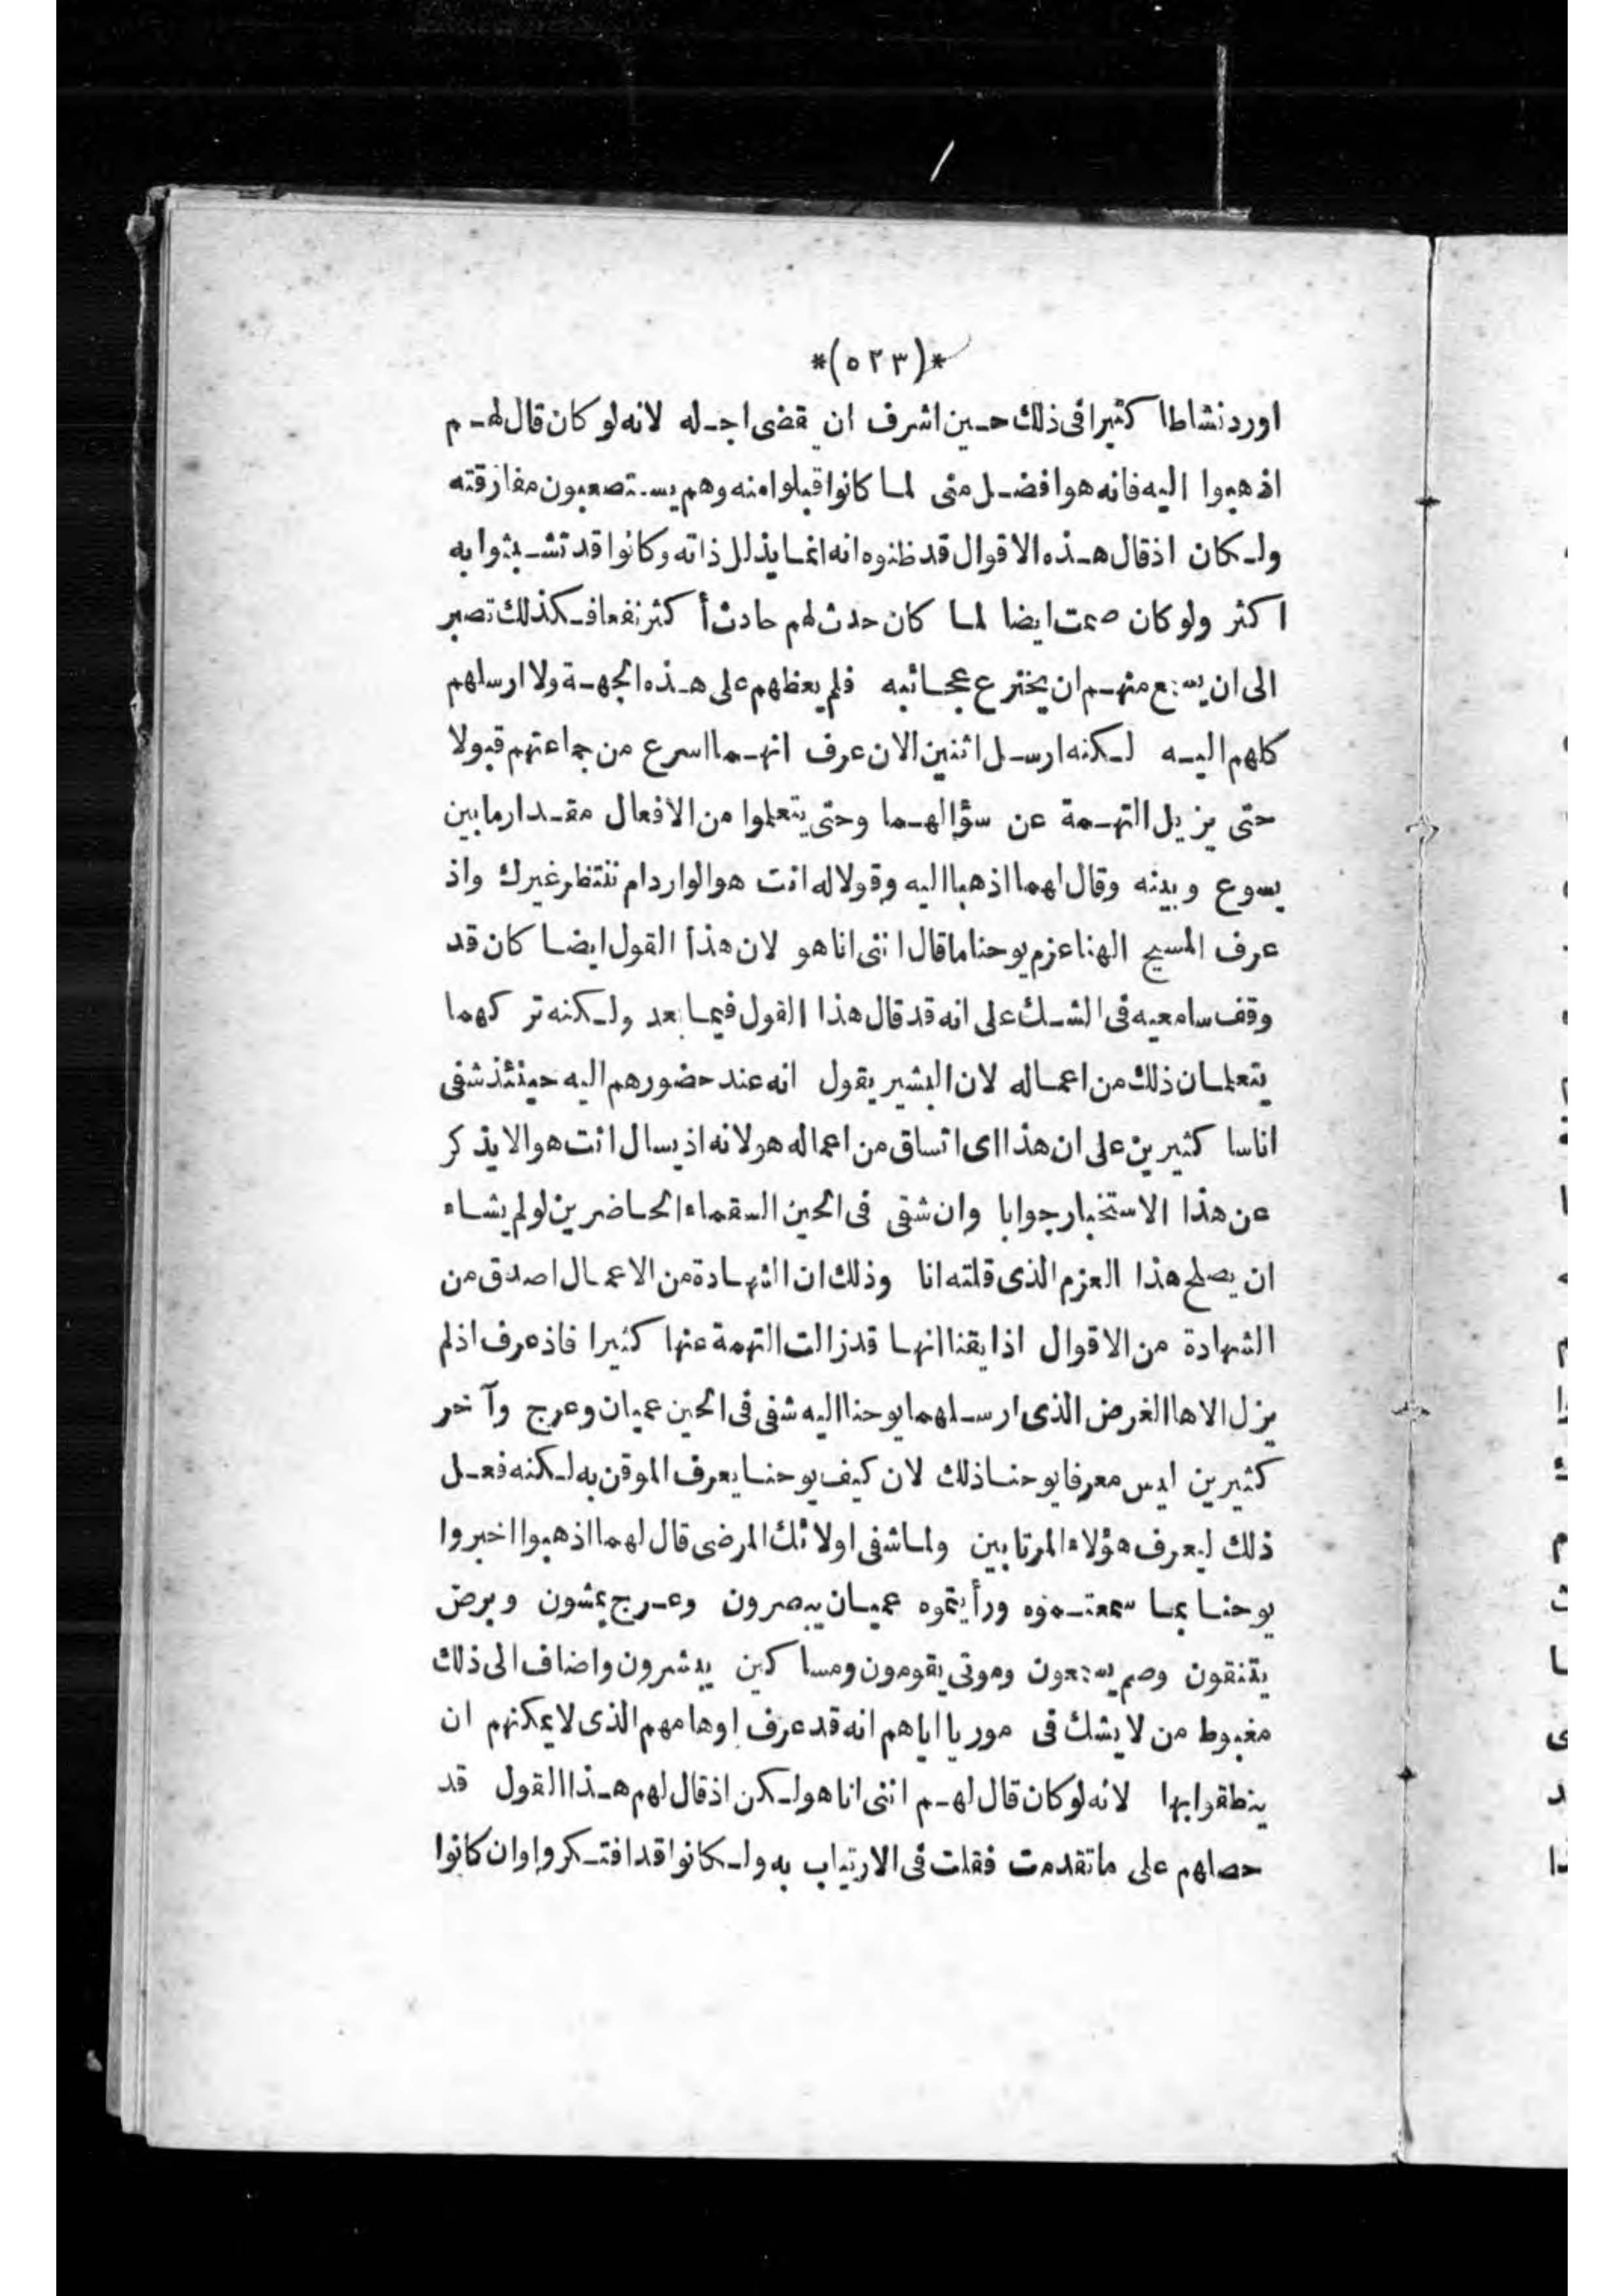 *(٥٢٣)*
اورد نشاطا كثيرا فى ذلك حين اشرف ان يقضى اجله لانه لو كان قال لهم
اذهبوا اليه فانه هو افضل منى لما كانوا قبلوا منه وهم يستصعبون مفارقته
ولكان اذ قال هذه الاقوال قد ظنوه انه انما يذلل ذاته وكانوا قد تشبثوا به
اكثر ولو كان صمت ايضا لما كان حدث لهم حادث أكثر نفعا فكذلك تصبر
الى ان يسمع منهم ان يخترع عجائبه فلم يعظهم على هذه الجهة ولا ارسلهم
كلهم اليه لكنه ارسل اثنين الان عرف انهما اسرع من جماعتهم قبولا
حتى يزيل التهمة عن سؤالهما وحتى يتعلموا من الافعال مقدار ما بين
يسوع وبينه وقال لهما اذهبا اليه وقولا له انت هو الوارد ام ننتظر غيرك واذ
عرف المسيح الهنا عزم يوحنا ما قال اننى انا هو لان هذا القول ايضا كان قد
وقف سامعيه فى الشك على انه قد قال هذا القول فيما بعد ولكنه تركهما
يتعلمان ذلك من اعماله لان البشير يقول انه عند حضورهم اليه حينئذ شفى
اناسا كثيرين على ان هذا اى اتساق من اعماله هو لانه اذ يسال انت هو الا يذكر
عن هذا الاستخبار جوابا وان شفى فى الحين السقماء الحاضرين لو لم يشاء
ان يصلح هذا العزم الذى قلته انا وذلك ان الشهادة من الاعمال اصدق من
الشهادة من الاقوال اذ ايقنا انها قد زالت التهمة عنها كثيرا فاذ عرف اذ لم
يزل الاها الغرض الذى ارسلهما يوحنا اليه شفى فى الحين عميان وعرج وآخر
كثيرين ليس معرفا يوحنا ذلك لان كيف يوحنا يعرف الموقن به لكنه فعل
ذلك ليعرف هؤلاء المرتابين ولما شفى اولائك المرضى قال لهما اذهبوا اخبروا
يوحنا بما سمعتموه ورأيتموه عميان يبصرون وعرج يمشون وبرض
يتنقون وصم يسمعون وموتى يقومون ومساكين يبشرون واضاف الى ذلك
مغبوط من لا يشك فى موريا اياهم انه قد عرف اوهامهم الذى لا يمكنهم ان
ينطقوا بها لانه لو كان قال لهم اننى انا هو ولكن اذ قال لهم هذا القول قد
حصلهم على ما تقدمت فقلت فى الارتياب به ولكانوا قد افتكروا وان كانوا